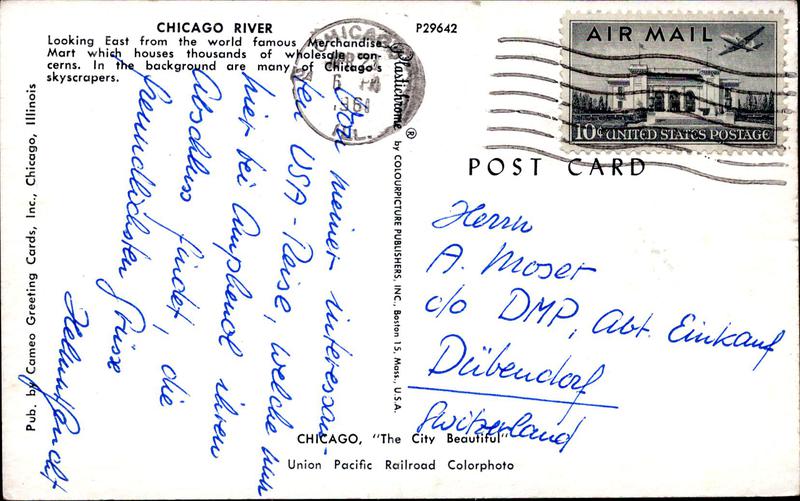 CHICAGO RIVER
Looking East from the world famous Merchandise
Mart which houses thousands of wholesale con-
cerns. In the background are many of Chicago's
skyscrapers.
P29642
CHICAGO
6 PM
1961
ILL.
AIR MAIL
10¢ UNITED STATES POSTAGE
POST CARD
Pub. by Cameo Greeting Cards, Inc., Chicago, Illinois
Plastichrome ® by COLOURPICTURE PUBLISHERS, INC., Boston 15, Mass., U.S.A.
Von meiner interessan-
ten USA-Reise, welche nun
hier bei Amphenol ihren
Abschluss findet, die
freundlichsten Grüsse
Herrn
A. Moser
c/o DMP, Abt. Einkauf
Dübendorf
Switzerland
CHICAGO, "The City Beautiful"
Union Pacific Railroad Colorphoto